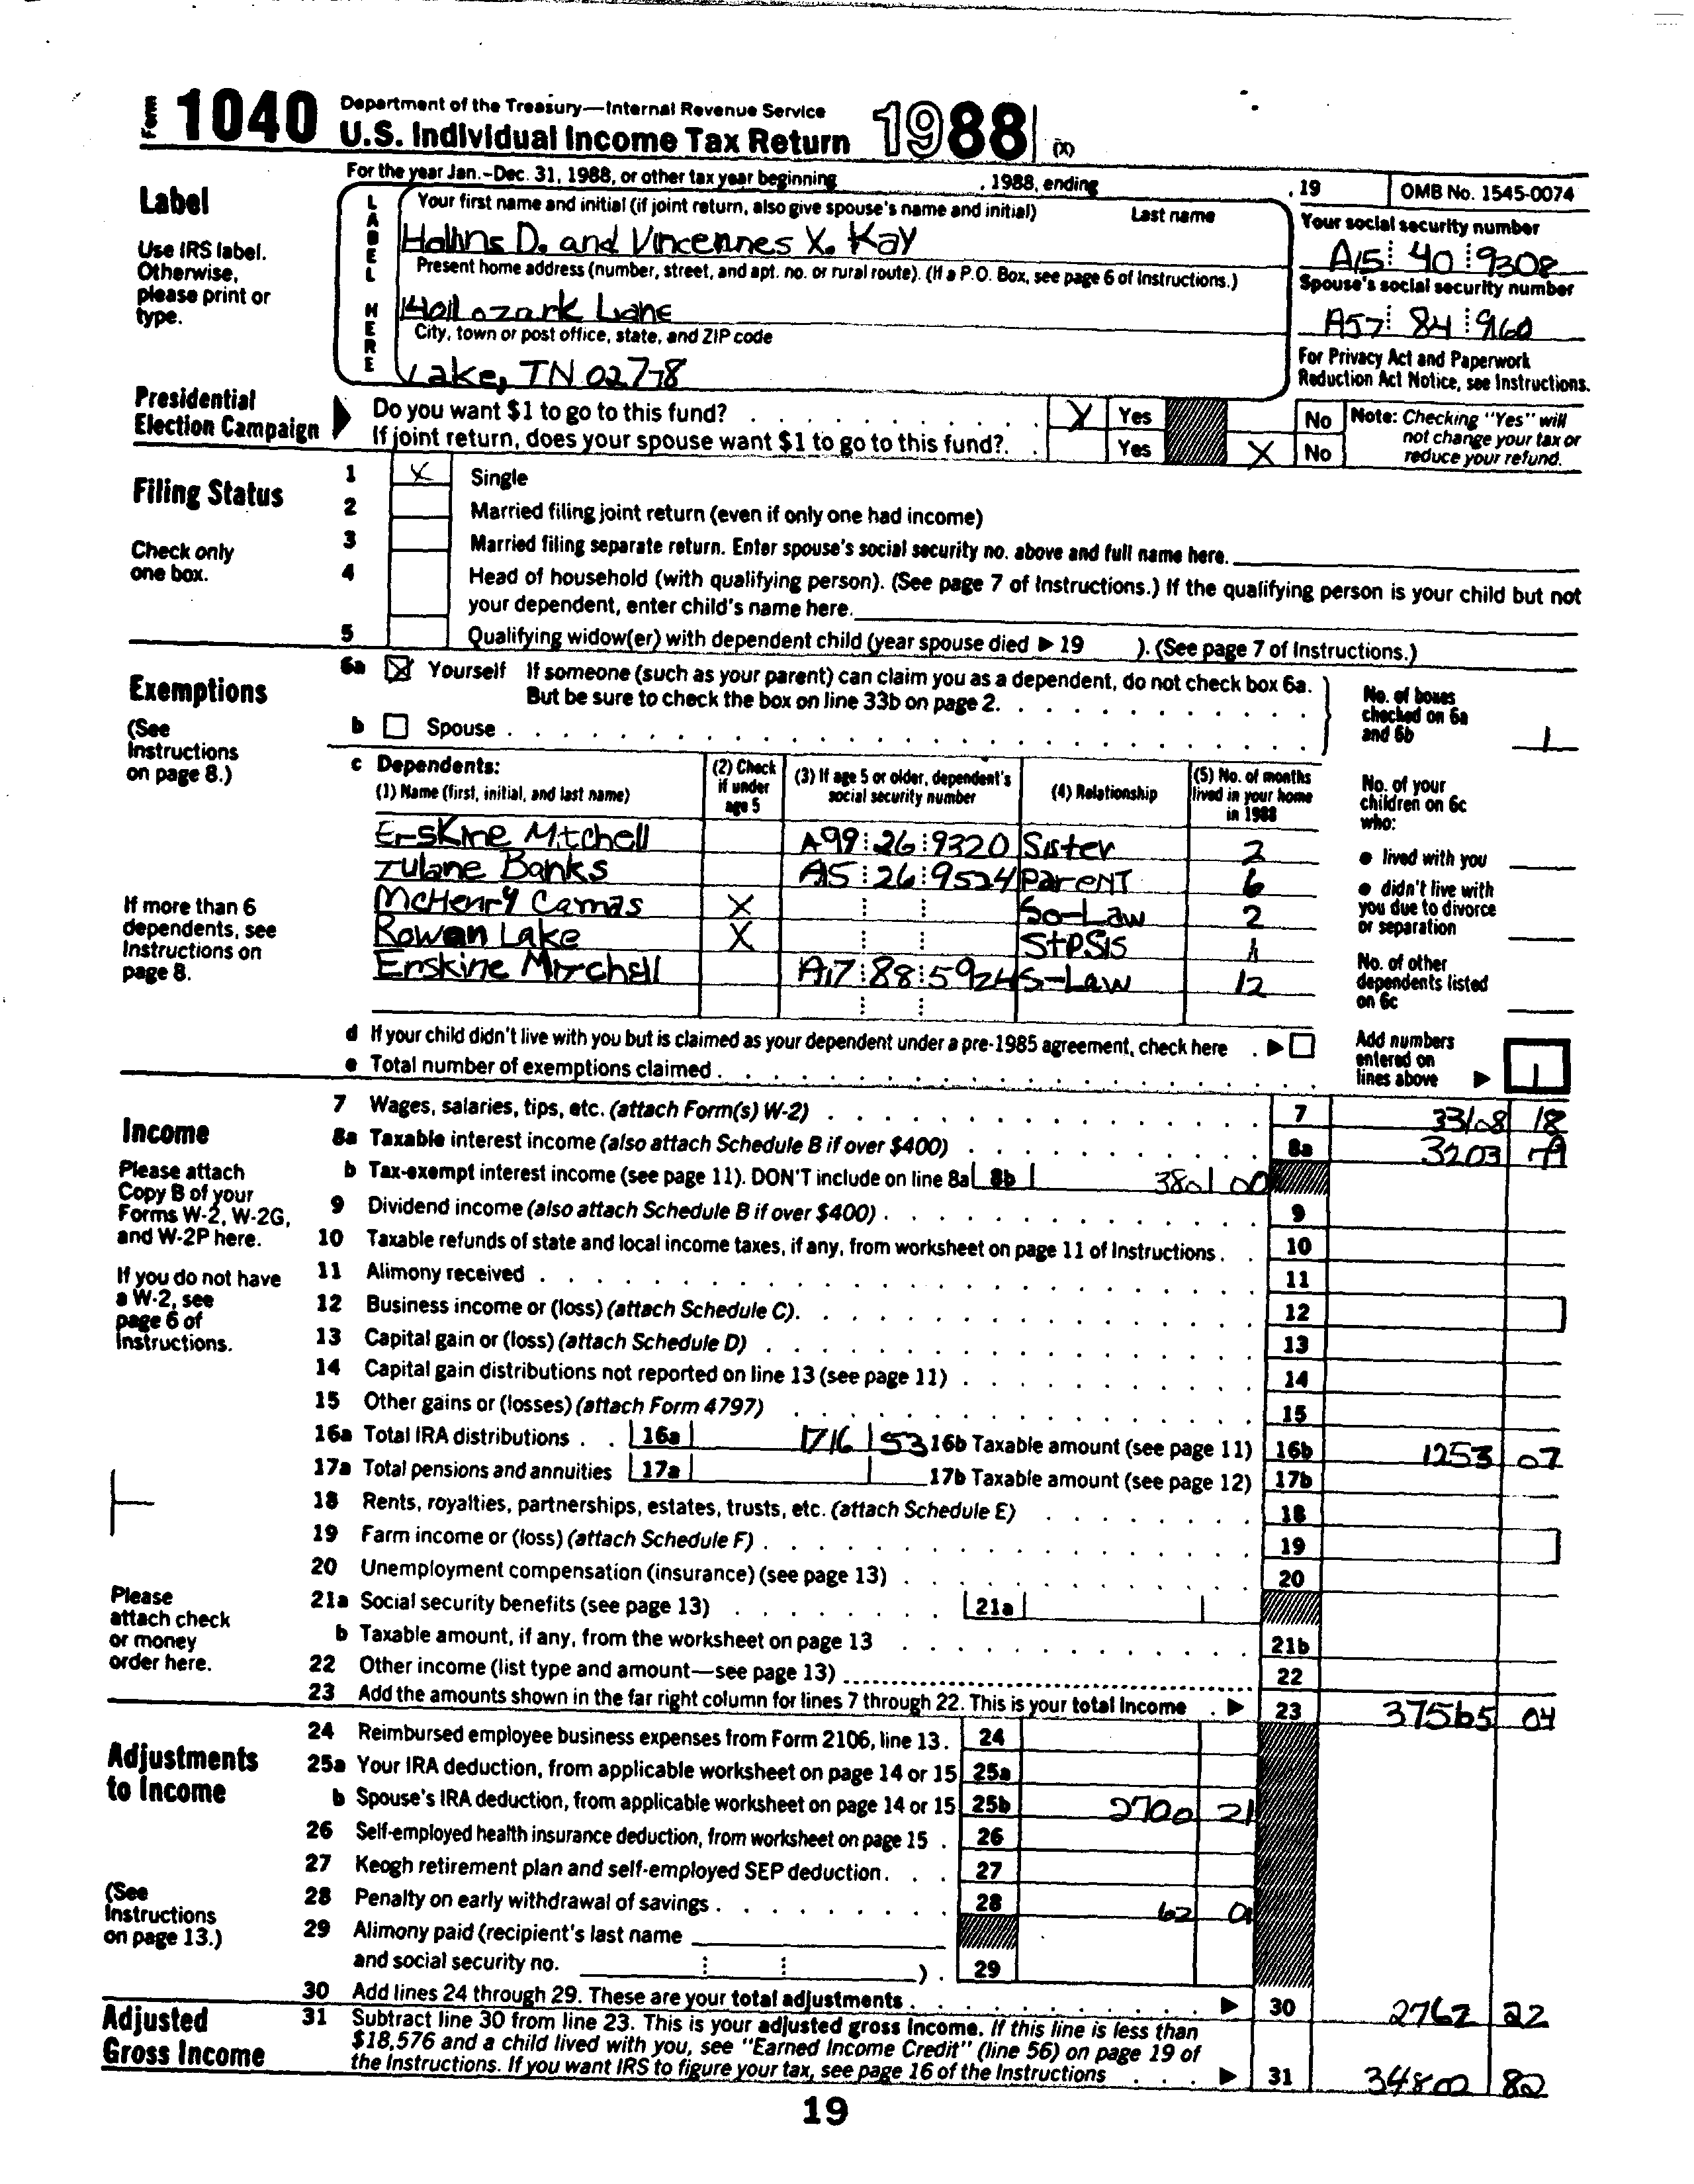 Form 1040 Department of the Treasury—Internal Revenue Service
U.S. Individual Income Tax Return 1988 (X)
For the year Jan.–Dec. 31, 1988, or other tax year beginning , 1988, ending , 19 OMB No. 1545-0074
Label
Use IRS label. Otherwise, please print or type.
LABEL HERE
Your first name and initial (if joint return, also give spouse's name and initial) Last name
Hollins D. and Vincennes X. Kay
Your social security number
A15 40 9308
Present home address (number, street, and apt. no. or rural route). (If a P.O. Box, see page 6 of Instructions.)
Ozark Lane
Spouse's social security number
A57 84 9160
City, town or post office, state, and ZIP code
Lake, TN 02778
For Privacy Act and Paperwork Reduction Act Notice, see Instructions.
Presidential Election Campaign
Do you want $1 to go to this fund? X Yes No
If joint return, does your spouse want $1 to go to this fund? Yes X No
Note: Checking "Yes" will not change your tax or reduce your refund.
Filing Status
Check only one box.
1 X Single
2 Married filing joint return (even if only one had income)
3 Married filing separate return. Enter spouse's social security no. above and full name here.
4 Head of household (with qualifying person). (See page 7 of Instructions.) If the qualifying person is your child but not
your dependent, enter child's name here.
5 Qualifying widow(er) with dependent child (year spouse died ▶ 19 ). (See page 7 of Instructions.)
Exemptions
(See Instructions on page 8.)
6a X Yourself If someone (such as your parent) can claim you as a dependent, do not check box 6a.
But be sure to check the box on line 33b on page 2.
b Spouse
No. of boxes checked on 6a and 6b 1
c Dependents:
(1) Name (first, initial, and last name) (2) Check if under age 5 (3) If age 5 or older, dependent's social security number (4) Relationship (5) No. of months lived in your home in 1988
Erskine Mitchell A99 26 9320 Sister 2
Tulane Banks A15 26 9524 Parent 6
McHenry Camas X So-Law 2
Rowan Lake X StpSis 1
Erskine Mitchell A17 88 5924 S-Law 12
If more than 6 dependents, see Instructions on page 8.
No. of your children on 6c who:
● lived with you
● didn't live with you due to divorce or separation
No. of other dependents listed on 6c
d If your child didn't live with you but is claimed as your dependent under a pre-1985 agreement, check here ▶
e Total number of exemptions claimed
Add numbers entered on lines above ▶ 1
Income
Please attach Copy B of your Forms W-2, W-2G, and W-2P here.
If you do not have a W-2, see page 6 of Instructions.
Please attach check or money order here.
7 Wages, salaries, tips, etc. (attach Form(s) W-2) 7 33108 18
8a Taxable interest income (also attach Schedule B if over $400) 8a 3203 79
b Tax-exempt interest income (see page 11). DON'T include on line 8a 8b 380 00
9 Dividend income (also attach Schedule B if over $400) 9
10 Taxable refunds of state and local income taxes, if any, from worksheet on page 11 of Instructions 10
11 Alimony received 11
12 Business income or (loss) (attach Schedule C) 12
13 Capital gain or (loss) (attach Schedule D) 13
14 Capital gain distributions not reported on line 13 (see page 11) 14
15 Other gains or (losses) (attach Form 4797) 15
16a Total IRA distributions 16a 1716 53 16b Taxable amount (see page 11) 16b 1253 07
17a Total pensions and annuities 17a 17b Taxable amount (see page 12) 17b
18 Rents, royalties, partnerships, estates, trusts, etc. (attach Schedule E) 18
19 Farm income or (loss) (attach Schedule F) 19
20 Unemployment compensation (insurance) (see page 13) 20
21a Social security benefits (see page 13) 21a
b Taxable amount, if any, from the worksheet on page 13 21b
22 Other income (list type and amount—see page 13) 22
23 Add the amounts shown in the far right column for lines 7 through 22. This is your total income ▶ 23 37565 04
Adjustments to Income
(See Instructions on page 13.)
24 Reimbursed employee business expenses from Form 2106, line 13. 24
25a Your IRA deduction, from applicable worksheet on page 14 or 15 25a
b Spouse's IRA deduction, from applicable worksheet on page 14 or 15 25b 2700 21
26 Self-employed health insurance deduction, from worksheet on page 15 26
27 Keogh retirement plan and self-employed SEP deduction 27
28 Penalty on early withdrawal of savings 28 62 01
29 Alimony paid (recipient's last name
and social security no. ) 29
30 Add lines 24 through 29. These are your total adjustments ▶ 30 2762 22
Adjusted Gross Income
31 Subtract line 30 from line 23. This is your adjusted gross income. If this line is less than
$18,576 and a child lived with you, see "Earned Income Credit" (line 56) on page 19 of
the Instructions. If you want IRS to figure your tax, see page 16 of the Instructions ▶ 31 34802 82
19